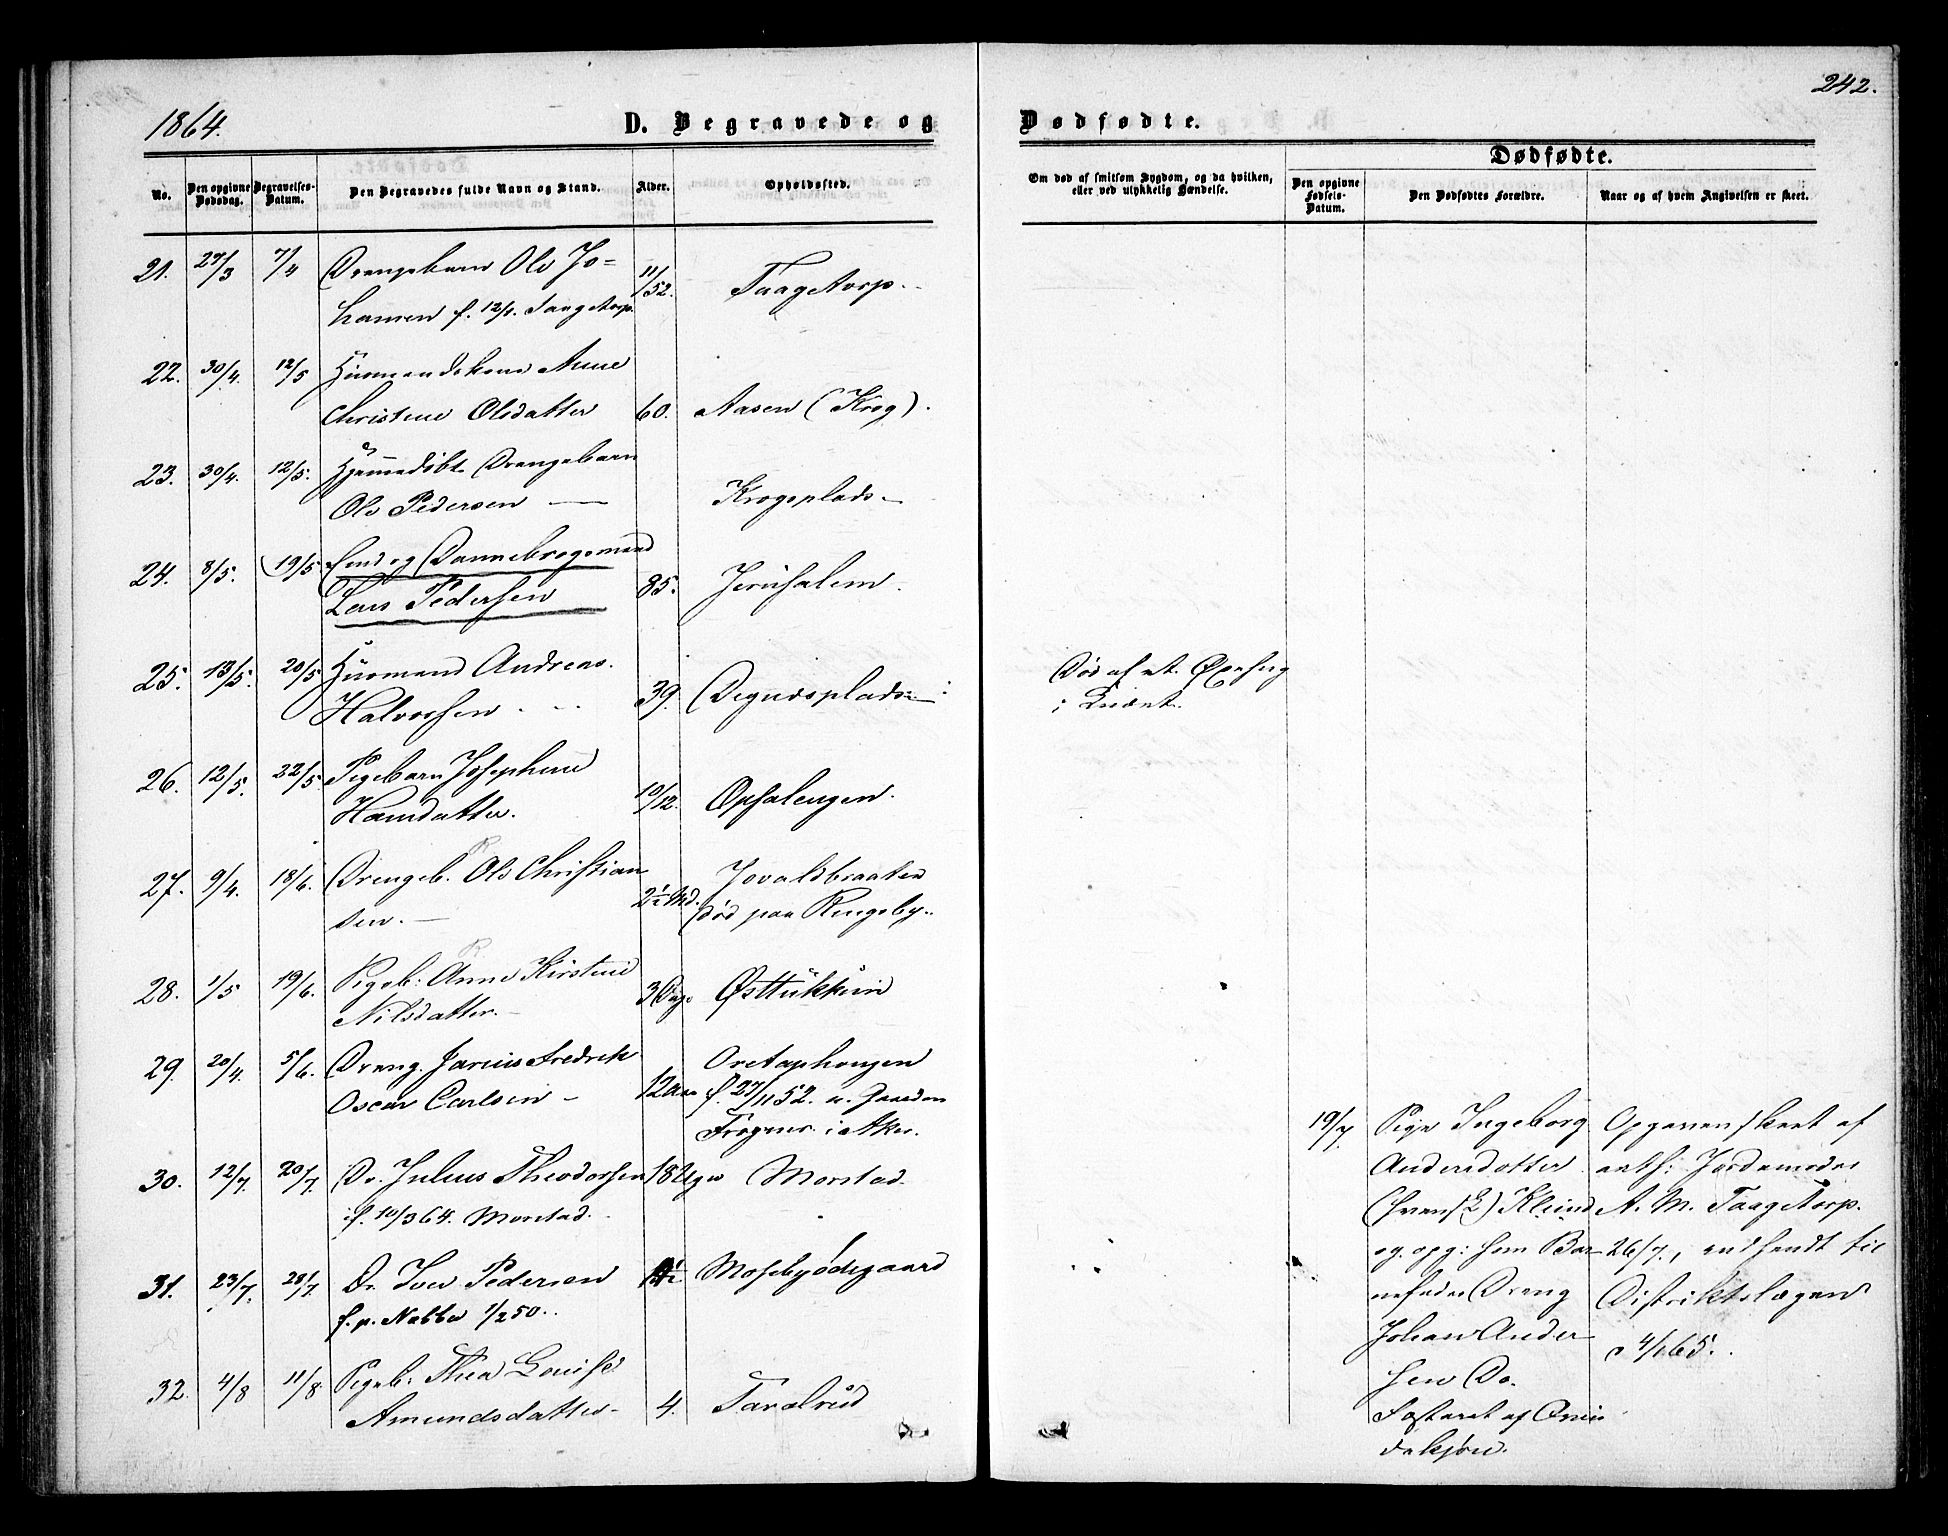 242.
1864.
D. Begravede og
Dødfødte.
Dødfødte.
No.
Den opgivne Dødsdag.
Begravelses-Datum.
Den Begravedes fulde Navn og Stand.
Alder.
Opholdssted.
Om død af smitsom Sygdom, og da hvilken,
eller ved ulykkelig Hændelse.
Den opgivne Fødsels-Datum.
Den Dødfødtes Forældre.
Naar og af hvem Angivelsen er skeet.
21. 27/3 7/4 Drengebarn Ole Jo=
hansen f. 12/1. Taagetorp. 11/52. Taagetorp.
22. 30/4. 12/5 Huusmandskone Anne
Christine Olsdatter 60. Aasen (Krog).
23. 30/4. 12/5. Hjemmedøbt Drengebarn
Ole Pedersen — Krogsplads
24. 8/5. 19/5. Dannebrogsmand
Lars Pedersen 85. Jerusalem.
25. 13/5. 20/5 Huusmand Andreas
Halvorsen 39. Degnesplads
Død af et
26. 12/5. 22/5. Pigebarn Josephine
Hansdatter. 10/12. Opsalengen.
27. 9/4. 18/6. Drengeb. Ole Christian
sen. 2½ Md. Jovaldbraaten
død paa Ringeby.
28. 1/5 19/6. Pigeb: Anne Kirstine
Nilsdatter. 3 Dage
29. 20/4. 5/6. Dreng. Fredrik
Oscar Carlsen 12 Aar
f. 27/11 52. u. Gaarden
Frogner i Aker.
30. 12/7. 20/7. Dr. Julius Theodorsen 18 Uger Morstad.
f. 10/3 64. Morstad.
31. 23/7. 28/7. Dr. Iver Pedersen Mosebyødegaard
f. p. Nabbe 1/2 50.
32. 4/8 11/8 Pigeb: Thea Louise
Amundsdatter 4. Taralrud
19/7 Pige Ingeborg
Andersdatter
(svensk) Klund
og opg: som Bar
nefader Dreng
Johan Ander
sen Do.
Fosteret af Qvin
dekjøn.
Opgaven skeet af
exth: Jordemoder
A. M. Taagetorp.
26/7., indsendt til
Distriktslægen
4/1 65.